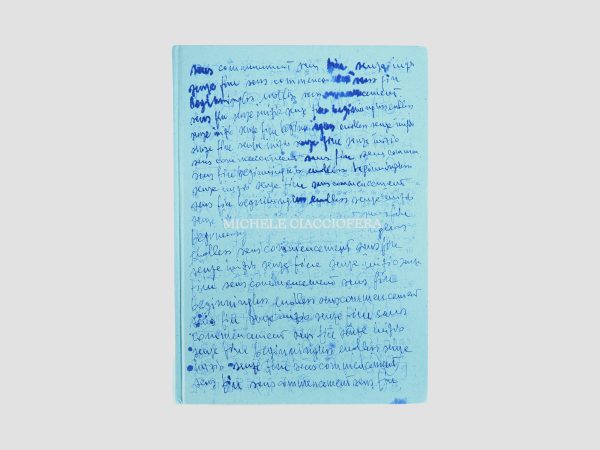 sans commencement sans fin senza inizio
senza fine sans commencement sans fin
beginningless endless sans commencement
sans fin senza inizio senza fine beginningless endless
senza inizio senza fine beginningless endless senza inizio
senza fine senza inizio senza fine senza inizio
sans commencement sans fin sans commen
sans fin beginningless endless beginningless
senza inizio senza fine sans commencement
sans fin beginningless endless senza inizio
senza sans fin
MICHELE CIACCIOFERA
endless sans commencement sans fin
senza inizio senza fine senza inizio senza
fine sans commencement sans fin
beginningless endless sans commencement
sans fin senza inizio senza fine sans
commencement sans fin senza inizio
senza fine beginningless endless senza
inizio senza fine sans commencement
sans fin sans commencement sans fin